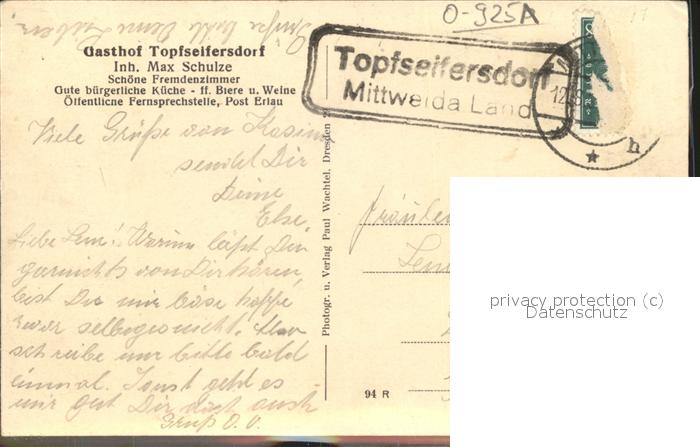 O-925A
Gasthof Topfseifersdorf
Inh. Max Schulze
Schöne Fremdenzimmer
Gute bürgerliche Küche - ff. Biere u. Weine
Öffentlicne Fernsprechstelle, Post Erlau
Topfseifersdorf
Mittweida Land
Viele Grüße von
sendet Dir
Deine
Else.
Liebe Lene! Warum läßt Du
garnichts von Dir hören,
bist Du mir böse hoffe
zwar selbego nicht.
schreibe mir bitte bald
einmal. Sonst geht es
mir gut Dir doch auch
Gruß D. O.
Photogr. u. Verlag Paul Wachtel, Dresden 2
Fräulein
94 R
h
privacy protection (c)
Datenschutz